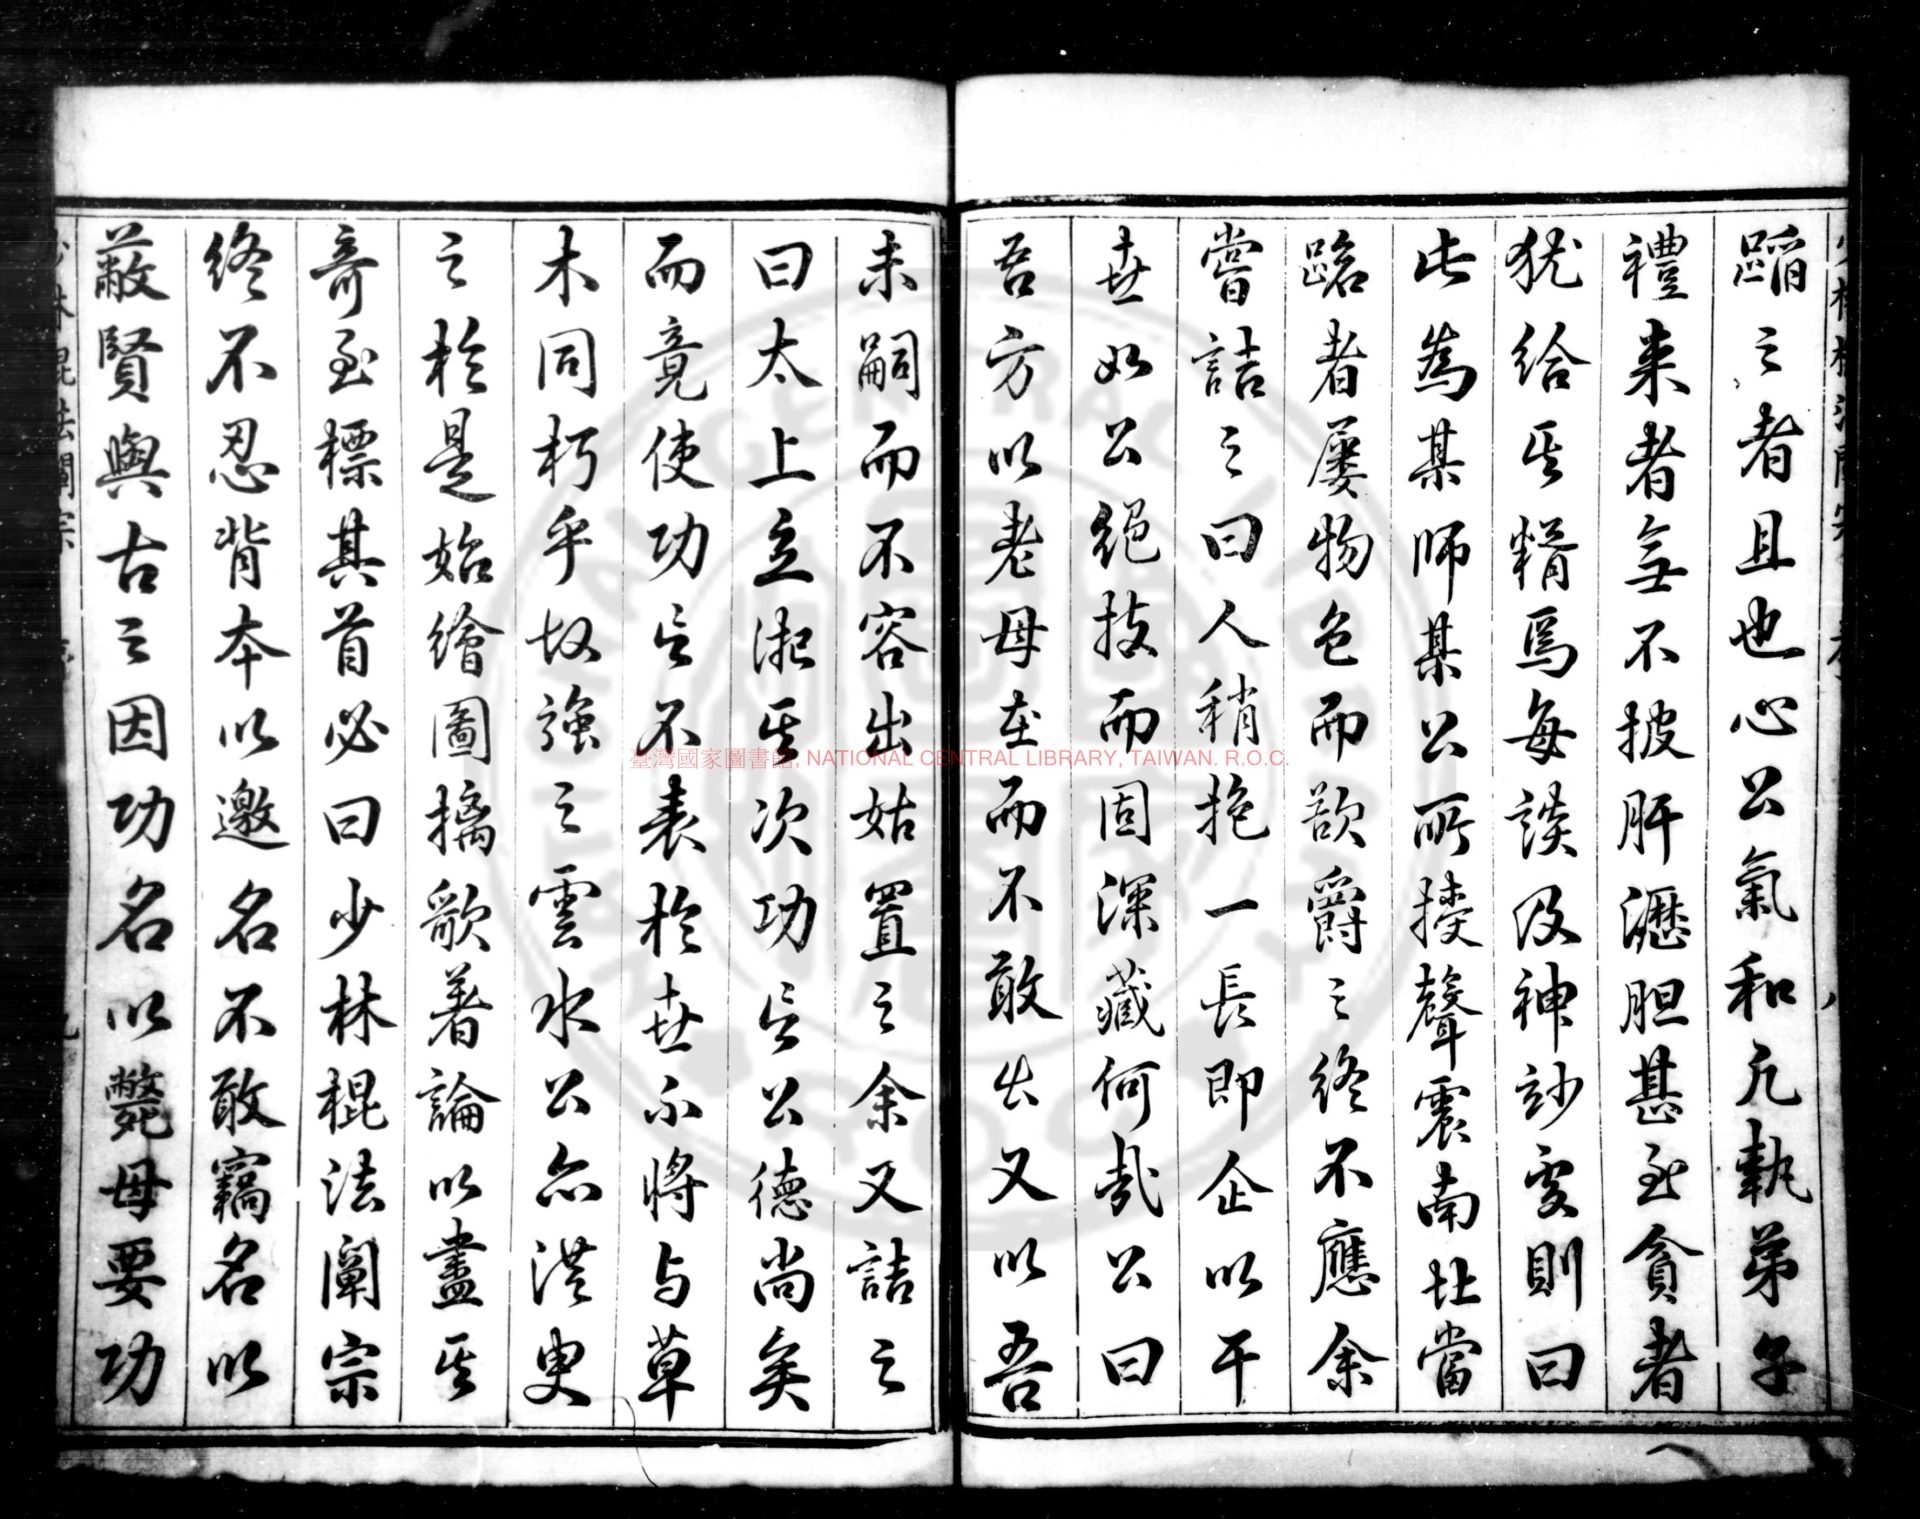 少林棍法闡宗 八
蹈之者且也心公氣和凡執弟子
禮来者無不披肝瀝胆甚至貧者
犹给其糈焉每談及神妙處則曰
此為某師某公所授聲震南北當
路者屡物色而欲爵之終不應余
嘗詰之曰人稍抱一長即企以干
世如公絕技而固深藏何哉公曰
吾方以老母在而不敢出又以吾
未嗣而不容出姑置之余又詰之
曰太上立其次功言公德尚矣
而竟使功言不表於世不将与草
木同朽乎故強之雲水公亦洪叟
之於是始繪圖摛歌著論以盡其
奇至標其首必曰少林棍法闡宗
終不忍背本以邀名不敢竊名以
蔽賢與古之因功名以斃母要功
少林棍法闡宗 九
臺灣國家圖書館, NATIONAL CENTRAL LIBRARY, TAIWAN. R.O.C.